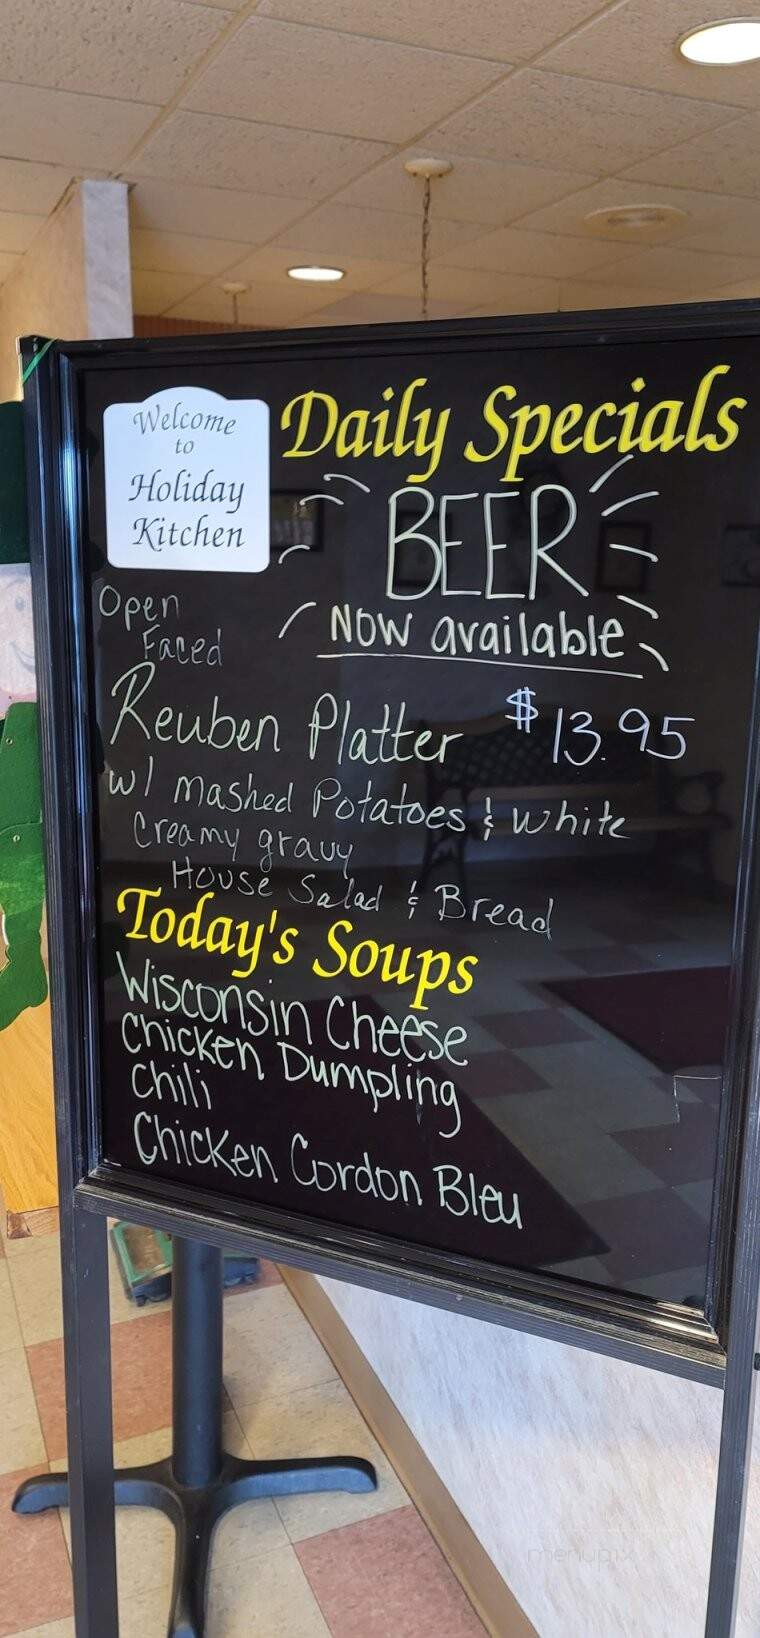 Welcome
to
Holiday
Kitchen
Daily Specials
BEER
Now available
Open
Faced
Reuben Platter $13.95
w/ mashed Potatoes & white
Creamy gravy
House Salad & Bread
Today's Soups
Wisconsin Cheese
Chicken Dumpling
Chili
Chicken Cordon Bleu
menupix